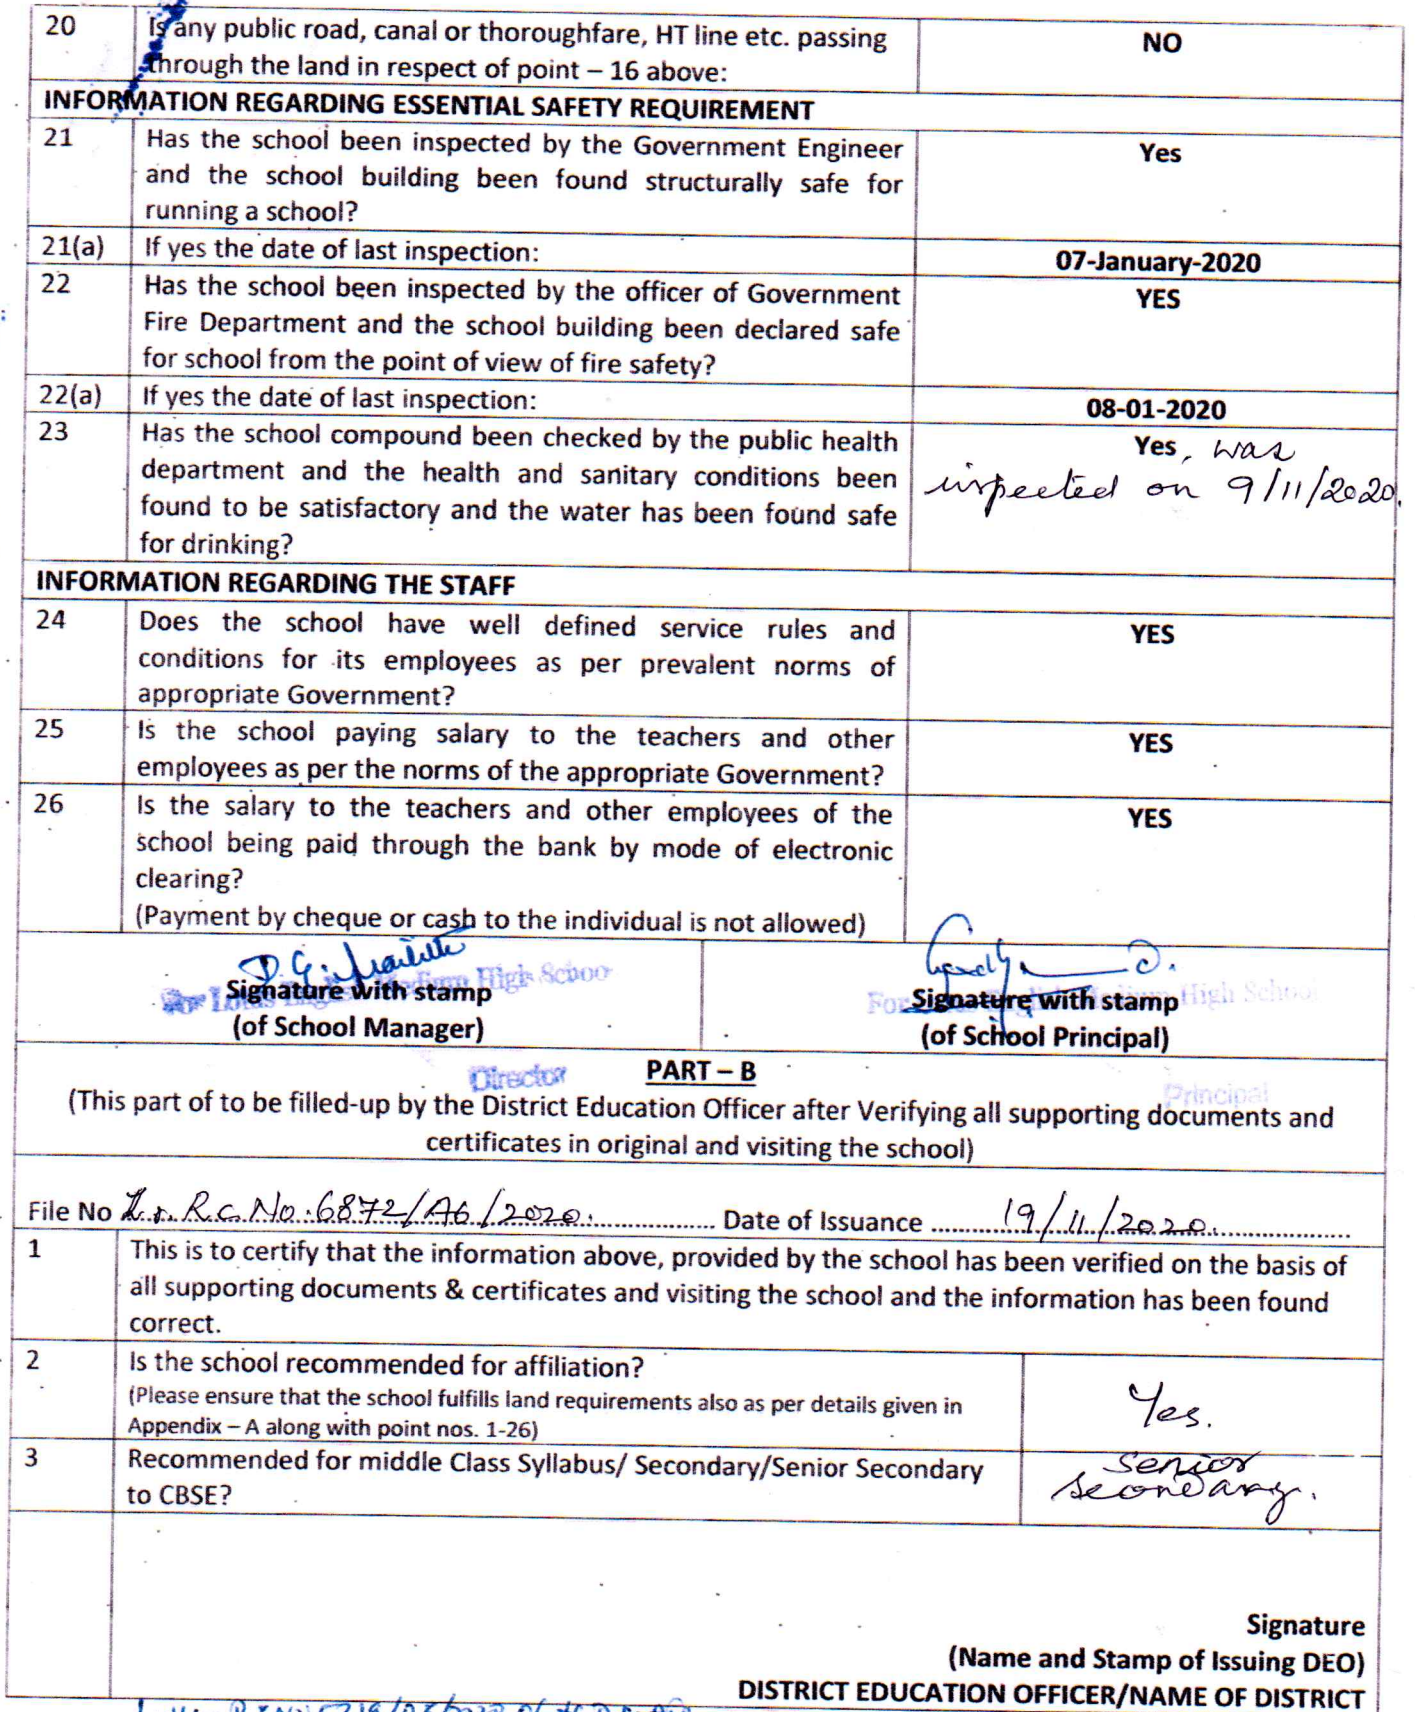 20 Is any public road, canal or thoroughfare, HT line etc. passing NO
through the land in respect of point – 16 above:
INFORMATION REGARDING ESSENTIAL SAFETY REQUIREMENT
21 Has the school been inspected by the Government Engineer Yes
and the school building been found structurally safe for
running a school?
21(a) If yes the date of last inspection: 07-January-2020
22 Has the school been inspected by the officer of Government YES
Fire Department and the school building been declared safe
for school from the point of view of fire safety?
22(a) If yes the date of last inspection: 08-01-2020
23 Has the school compound been checked by the public health Yes, was
department and the health and sanitary conditions been inspected on 9/11/2020.
found to be satisfactory and the water has been found safe
for drinking?
INFORMATION REGARDING THE STAFF
24 Does the school have well defined service rules and YES
conditions for its employees as per prevalent norms of
appropriate Government?
25 Is the school paying salary to the teachers and other YES
employees as per the norms of the appropriate Government?
26 Is the salary to the teachers and other employees of the YES
school being paid through the bank by mode of electronic
clearing?
(Payment by cheque or cash to the individual is not allowed)
For Lotus English Medium High School
Signature with stamp
(of School Manager)
Director
For Lotus English Medium High School
Signature with stamp
(of School Principal)
Principal
PART – B
(This part of to be filled-up by the District Education Officer after Verifying all supporting documents and
certificates in original and visiting the school)
File No Lr. R.c. No: 6872/A6/2020. Date of Issuance 19/11/2020.
1 This is to certify that the information above, provided by the school has been verified on the basis of
all supporting documents & certificates and visiting the school and the information has been found
correct.
2 Is the school recommended for affiliation? Yes.
(Please ensure that the school fulfills land requirements also as per details given in
Appendix – A along with point nos. 1-26)
3 Recommended for middle Class Syllabus/ Secondary/Senior Secondary Senior
to CBSE? secondary.
Signature
(Name and Stamp of Issuing DEO)
DISTRICT EDUCATION OFFICER/NAME OF DISTRICT